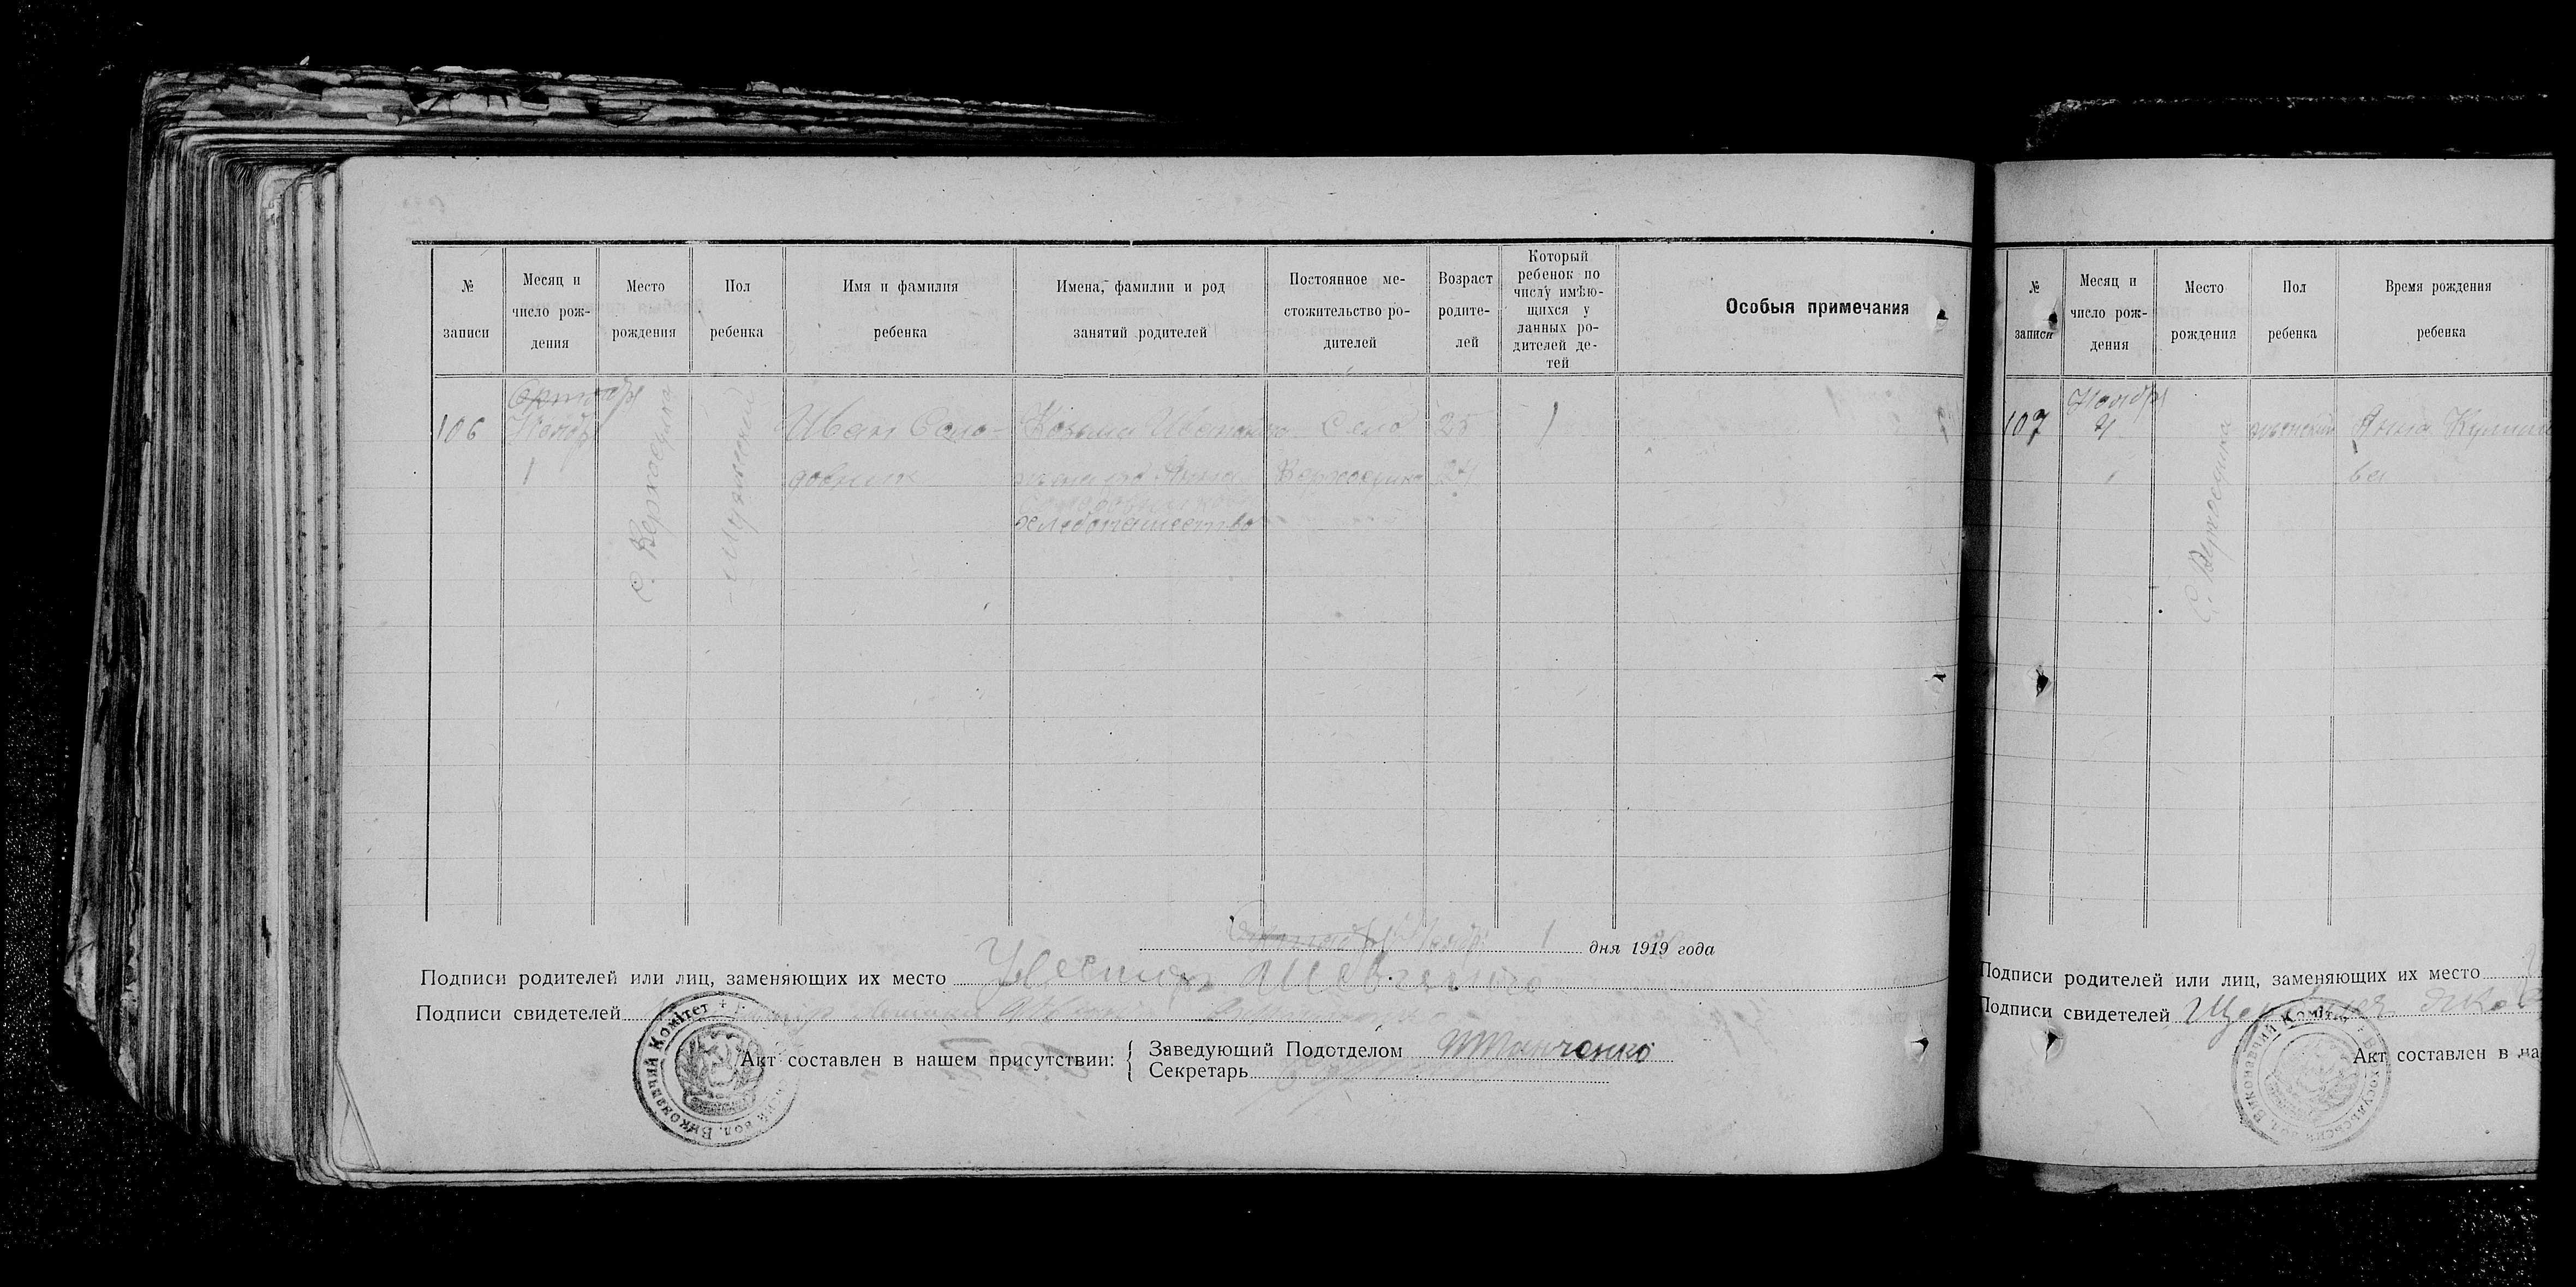 № записи
Месяц и число рождения
Место рождения
Пол ребенка
Имя и фамилия ребенка
Имена, фамилии и род занятий родителей
Постоянное местожительство родителей
Возраст родителей
Который ребенок по числу имѣющихся у данных родителей детей
Особыя примечания
106
Октябр
Ноябр
1
С. Верхосулка
Мужеский
Иван Соло-
довник
Козьма Иванов
жена его Анна
хлебопашество
Село
Верхосулка
25
24
1
1 дня 1919 года
Подписи родителей или лиц, заменяющих их место Нестер Шевченко
Подписи свидетелей
Акт составлен в нашем присутствии:
Заведующий Подотделом
Секретарь
Виконавчий Комітет
№ записи
Месяц и число рождения
Место рождения
Пол ребенка
Время рождения ребенка
107
Ноябр
4
С. Верхосулка
женский
Анна
ва
Подписи родителей или лиц, заменяющих их место
Подписи свидетелей
Акт составлен в на
Верхосульськ вол. Виконавчий Комітет